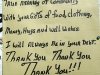 True money of Community
With your Gifts of food, clothing,
Money, Hugs and well wishes
I will always be in your debt.
Thank You Thank You
Thank You!!!